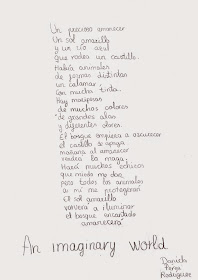 Un precioso amanecer
Un sol amarillo
y un río azul
que rodea un castillo.
Habrá animales
de formas distintas
un calamar
con mucha tinta.
Hay mariposas
de muchos colores
de grandes alas
y diferentes olores.
El bosque empieza a oscurecer
el castillo se apaga
mañana al amanecer
vendrá la maga.
Hará muchos chicos
que miedo me dan
pero todos los animales
a mí me protegerán
El sol amarillo
volverá a iluminar
el bosque encantado
amanecerá
An imaginary world
Daniela
Parga
Rodríguez